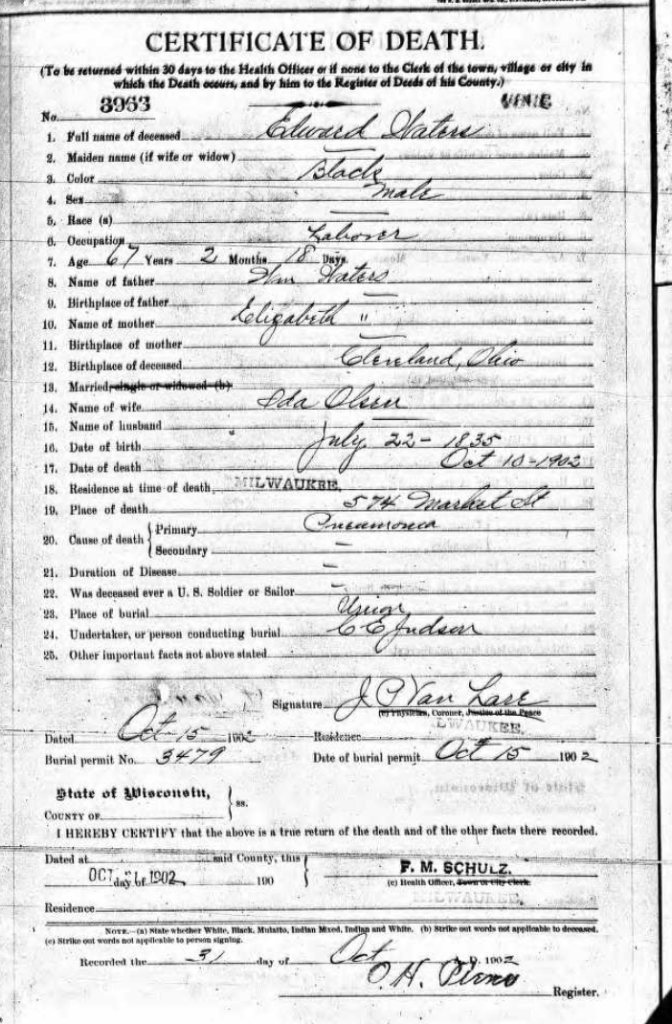 CERTIFICATE OF DEATH.
(To be returned within 30 days to the Health Officer or if none to the Clerk of the town, village or city in
which the Death occurs, and by him to the Register of Deeds of his County.)
No. 3963
1. Full name of deceased Edward Waters
2. Maiden name (if wife or widow) —
3. Color Black
4. Sex Male
5. Race (a) —
6. Occupation Laborer
7. Age 67 Years 2 Months 18 Days.
8. Name of father Wm Waters
9. Birthplace of father —
10. Name of mother Elizabeth "
11. Birthplace of mother —
12. Birthplace of deceased Cleveland, Ohio
13. Married, single or widowed (b)
14. Name of wife Ida Olsen
15. Name of husband —
16. Date of birth July 22 - 1835
17. Date of death Oct 10 - 1902
18. Residence at time of death, MILWAUKEE,
19. Place of death 574 Market St
20. Cause of death { Primary Pneumonia
Secondary —
21. Duration of Disease —
22. Was deceased ever a U. S. Soldier or Sailor —
23. Place of burial Union
24. Undertaker, or person conducting burial C E Judson
25. Other important facts not above stated
Signature J. C. Van
(c) Physician, Coroner, Justice of the Peace
Dated Oct 15 1902 Residence MILWAUKEE,
Burial permit No. 3479 Date of burial permit Oct 15 1902
State of Wisconsin, } ss.
COUNTY OF
I HEREBY CERTIFY that the above is a true return of the death and of the other facts there recorded.
Dated at said County, this } F. M. SCHULZ.
OCT day of 1902 190 (c) Health Officer, Town or City Clerk
MILWAUKEE,
Residence
NOTE.—(a) State whether White, Black, Mulatto, Indian Mixed, Indian and White. (b) Strike out words not applicable to deceased.
(c) Strike out words not applicable to person signing.
Recorded the 31 day of Oct A. D. 1902
O. H.
Register.